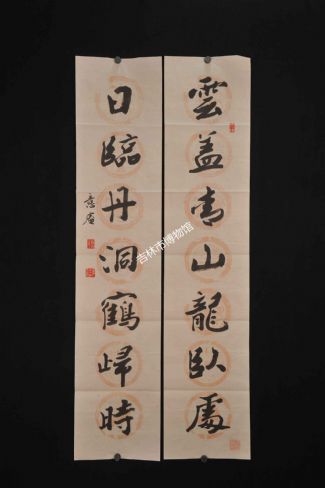 雲盖青山龍臥處
日臨丹洞鶴歸時
吉林市博物馆